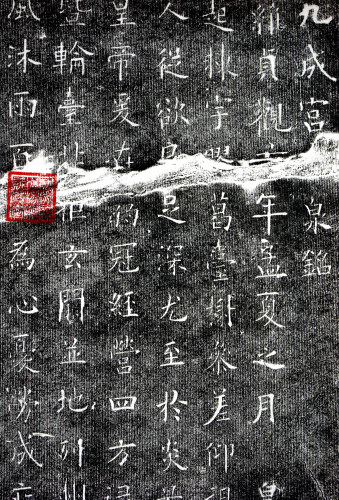 九成宮泉銘
維貞觀六年孟夏之月皇
起棟宇膠葛臺榭參差仰視
人從欲良足深尤至於炎景
皇帝爰在弱冠經營四方逮
暨輪臺北拒玄闕並地列州
風沐雨百為心憂勞成疾